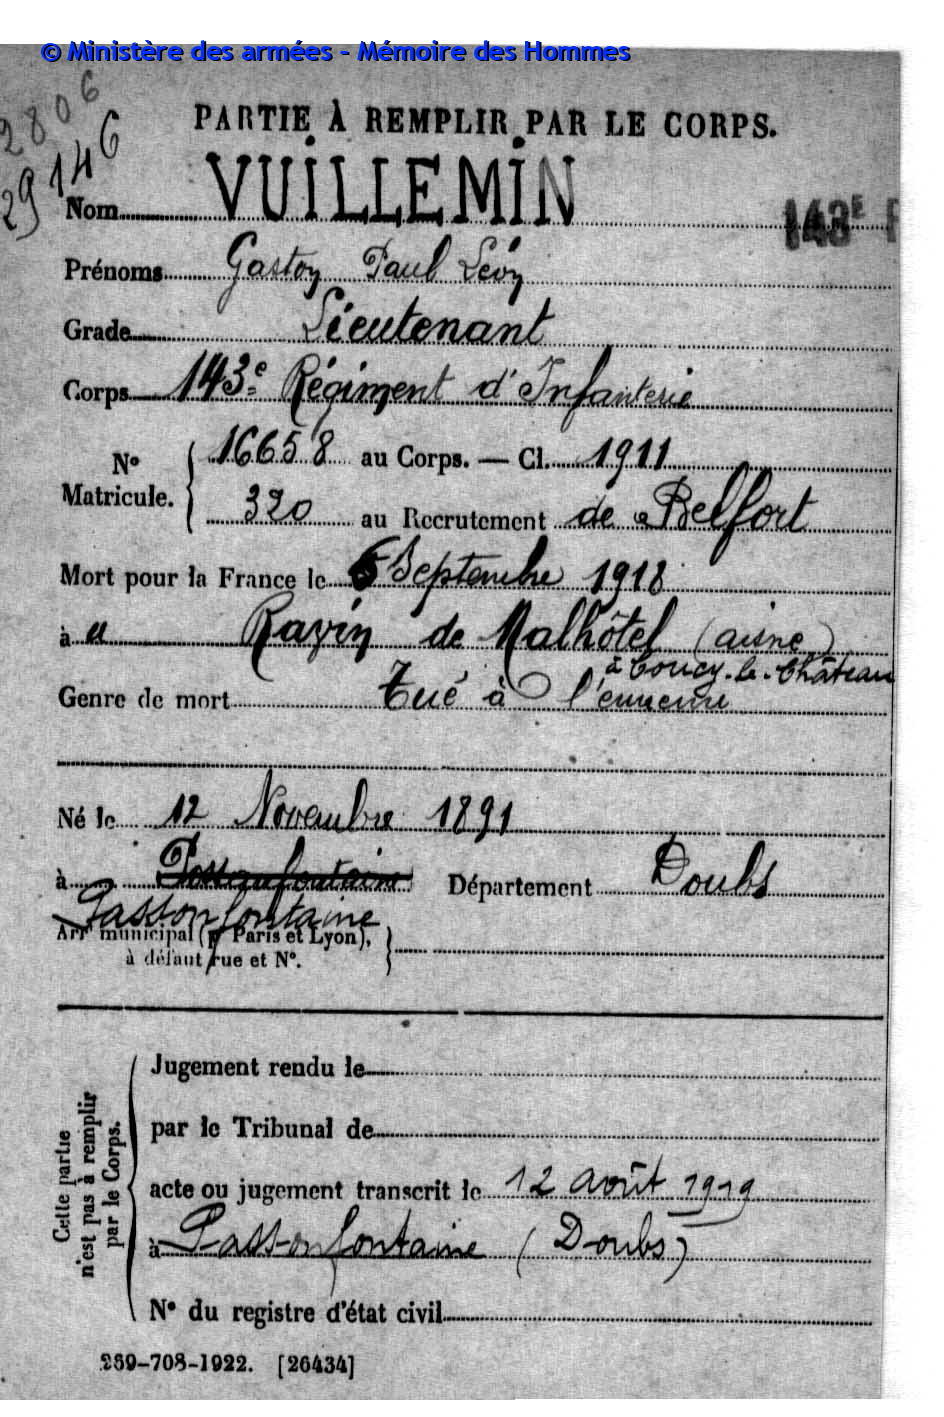 © Ministère des armées - Mémoire des Hommes
2806
29146
PARTIE À REMPLIR PAR LE CORPS.
Nom VUILLEMIN
143E
Prénoms Gaston Paul Léon
Grade Lieutenant
Corps 143e Régiment d'Infanterie
No Matricule. { 16658 au Corps. — Cl. 1911
320 au Recrutement de Belfort
Mort pour la France le 6 Septembre 1918
à " Ravin de Malhôtel (aisne)
à Coucy-le-Château
Genre de mort Tué à l'ennemi
Né le 12 Novembre 1891
à Passonfontaine Département Doubs
Passonfontaine
Arrt municipal (pr Paris et Lyon),
à défaut rue et No.
Cette partie n'est pas à remplir par le Corps.
Jugement rendu le
par le Tribunal de
acte ou jugement transcrit le 12 août 1919
à Passonfontaine (Doubs)
No du registre d'état civil
269-708-1922. [26434]